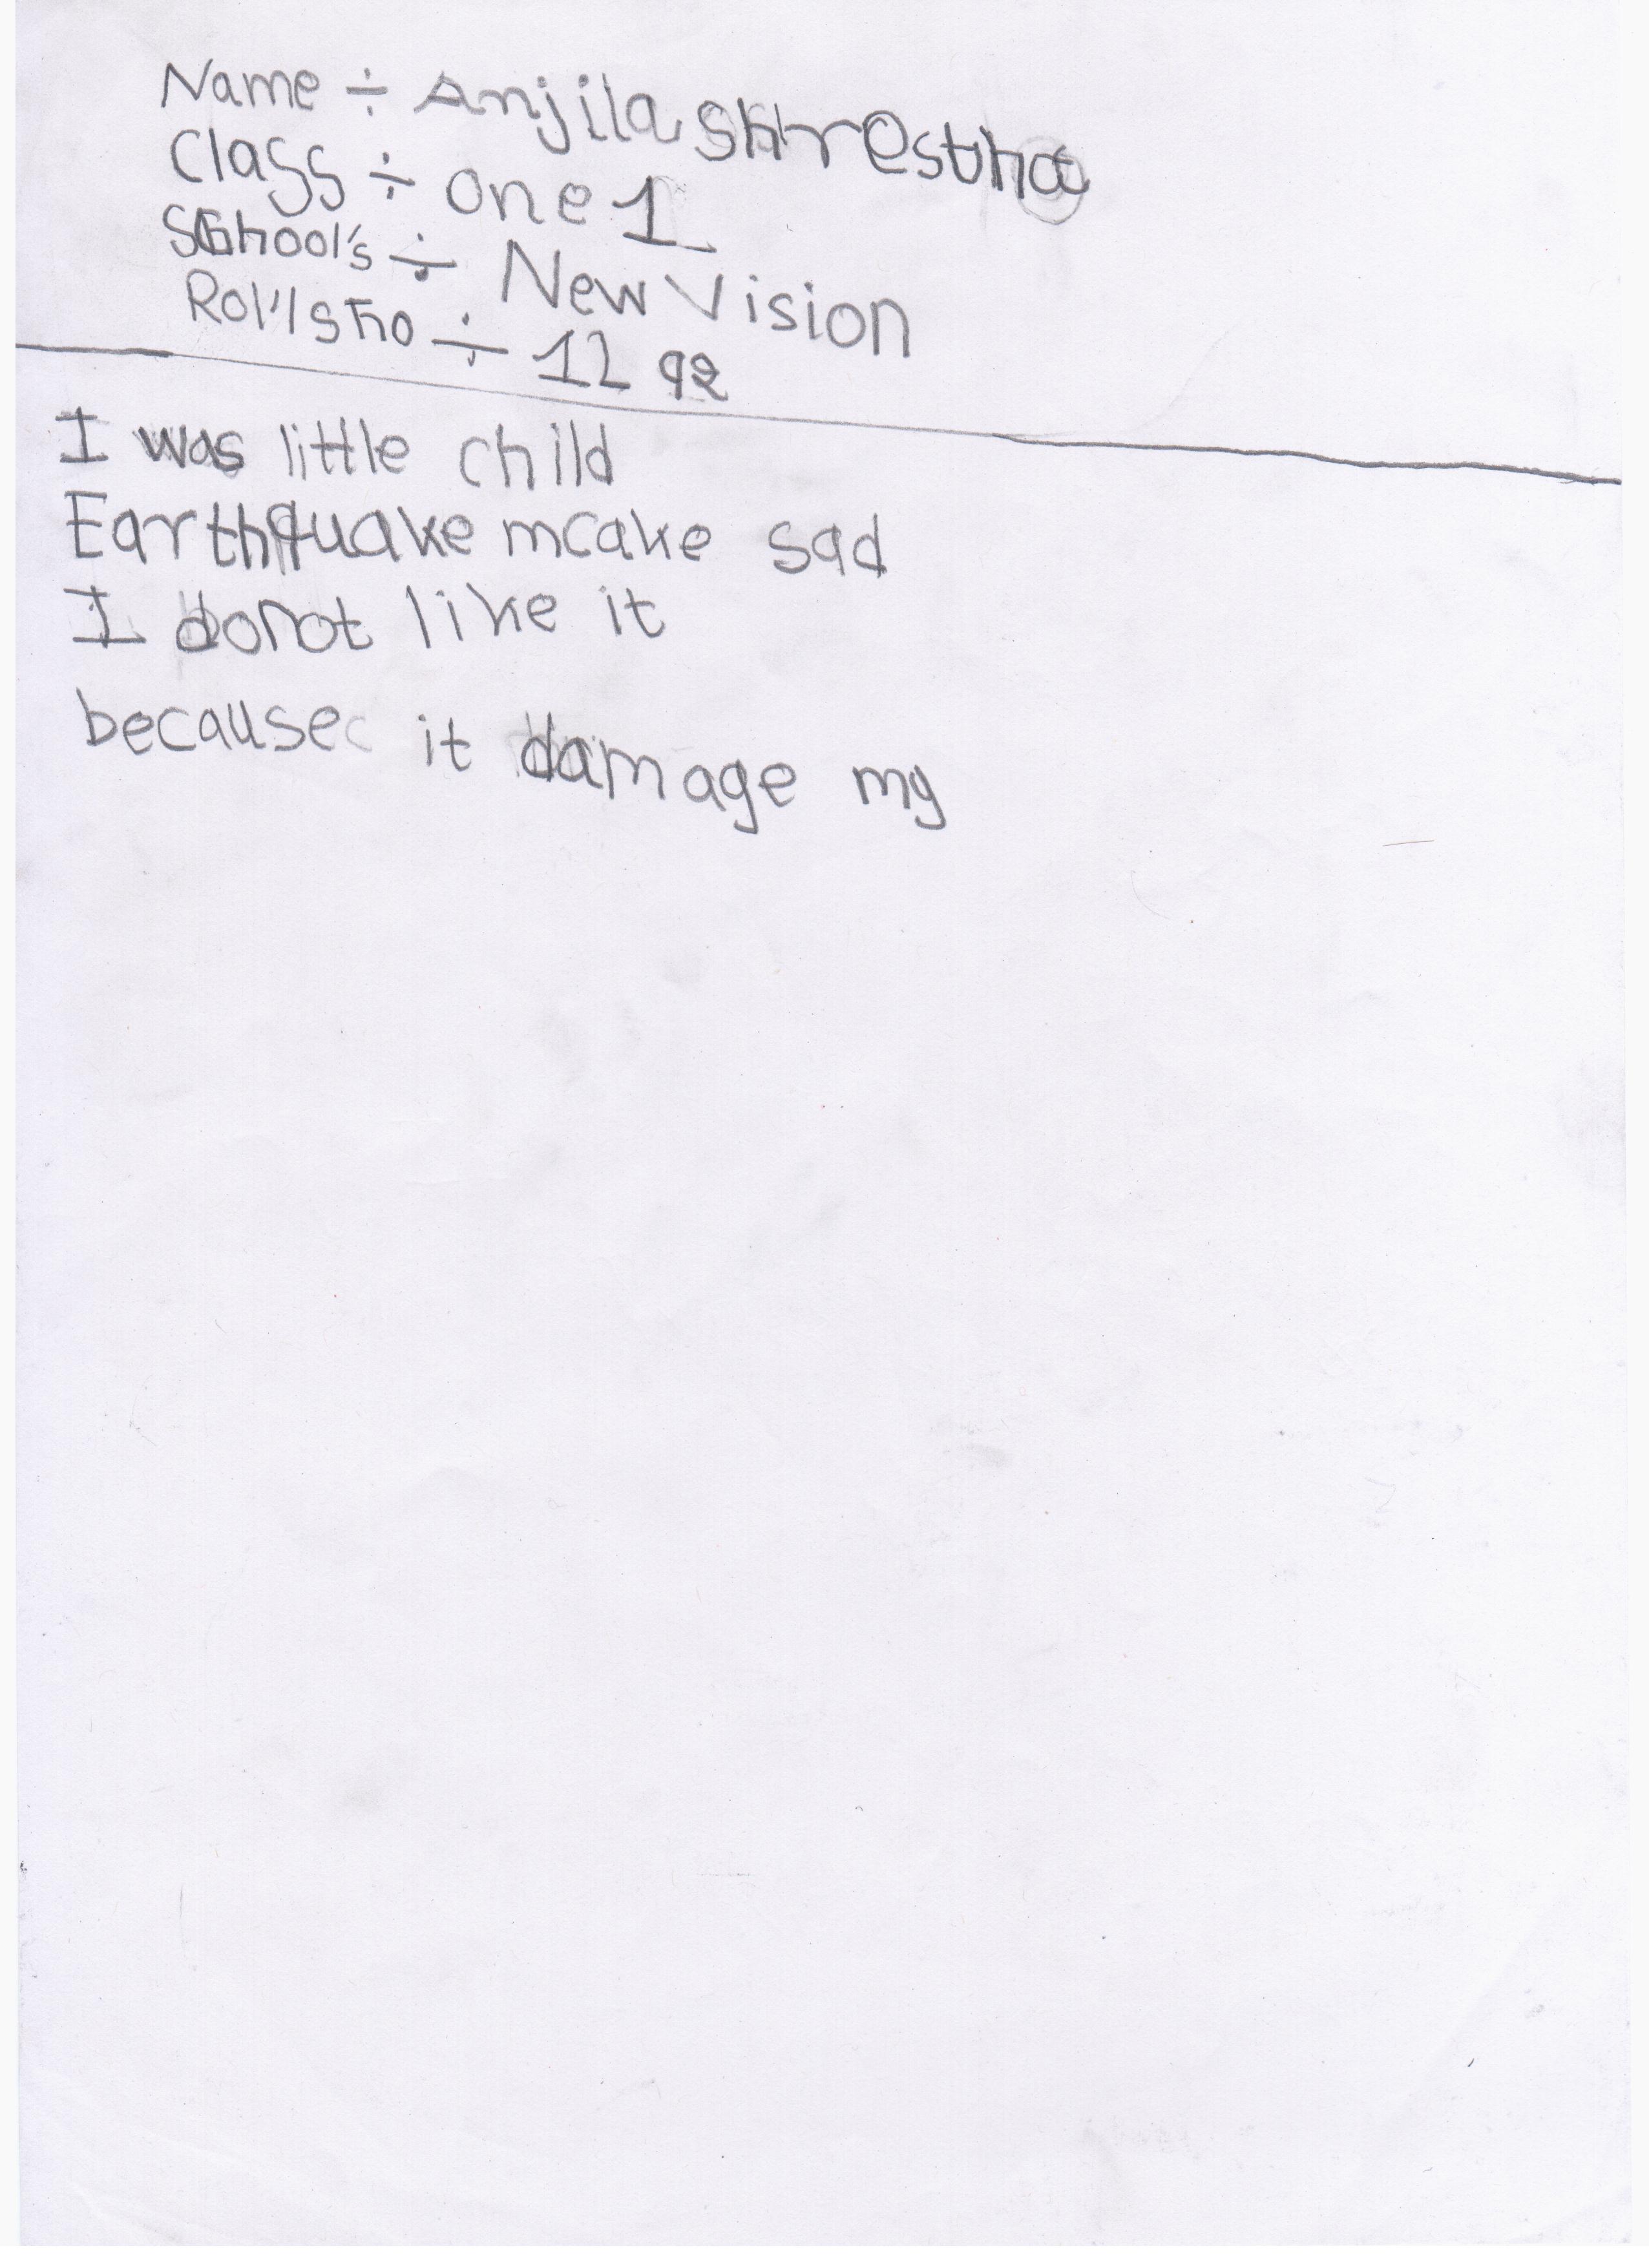 Name ÷ Anjila Shrestha
Class ÷ One 1
School's ÷ New Vision
Roll's no ÷ 12 १२
I was little child
Earthquake mcake sad
I donot like it
because it damage my